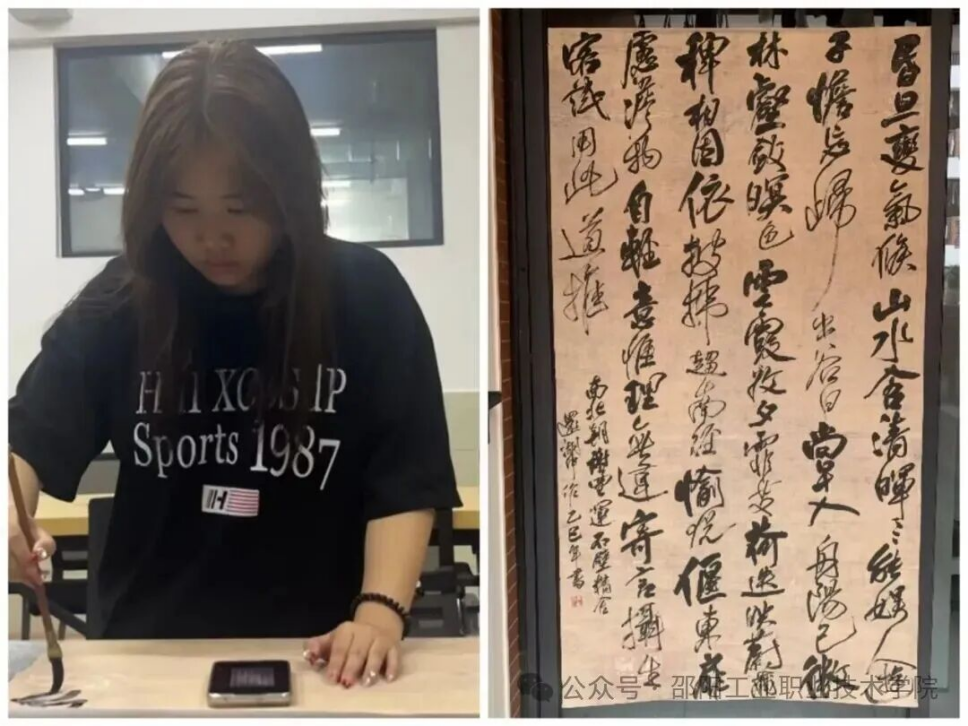 Sports 1987
昏旦變氣候山水含清暉〻能娱人遊
子憺忘歸出谷日尚早入舟陽已微
林壑斂暝色雲霞收夕霏芰荷迭映蔚蒲
稗相因依披拂趨南徑愉悦偃東扉
慮澹物自輕意愜理無違寄言攝生
客試用此道推
南北朝謝靈運石壁精舍
還湖中作乙巳年書
公众号·邵阳工业职业技术学院